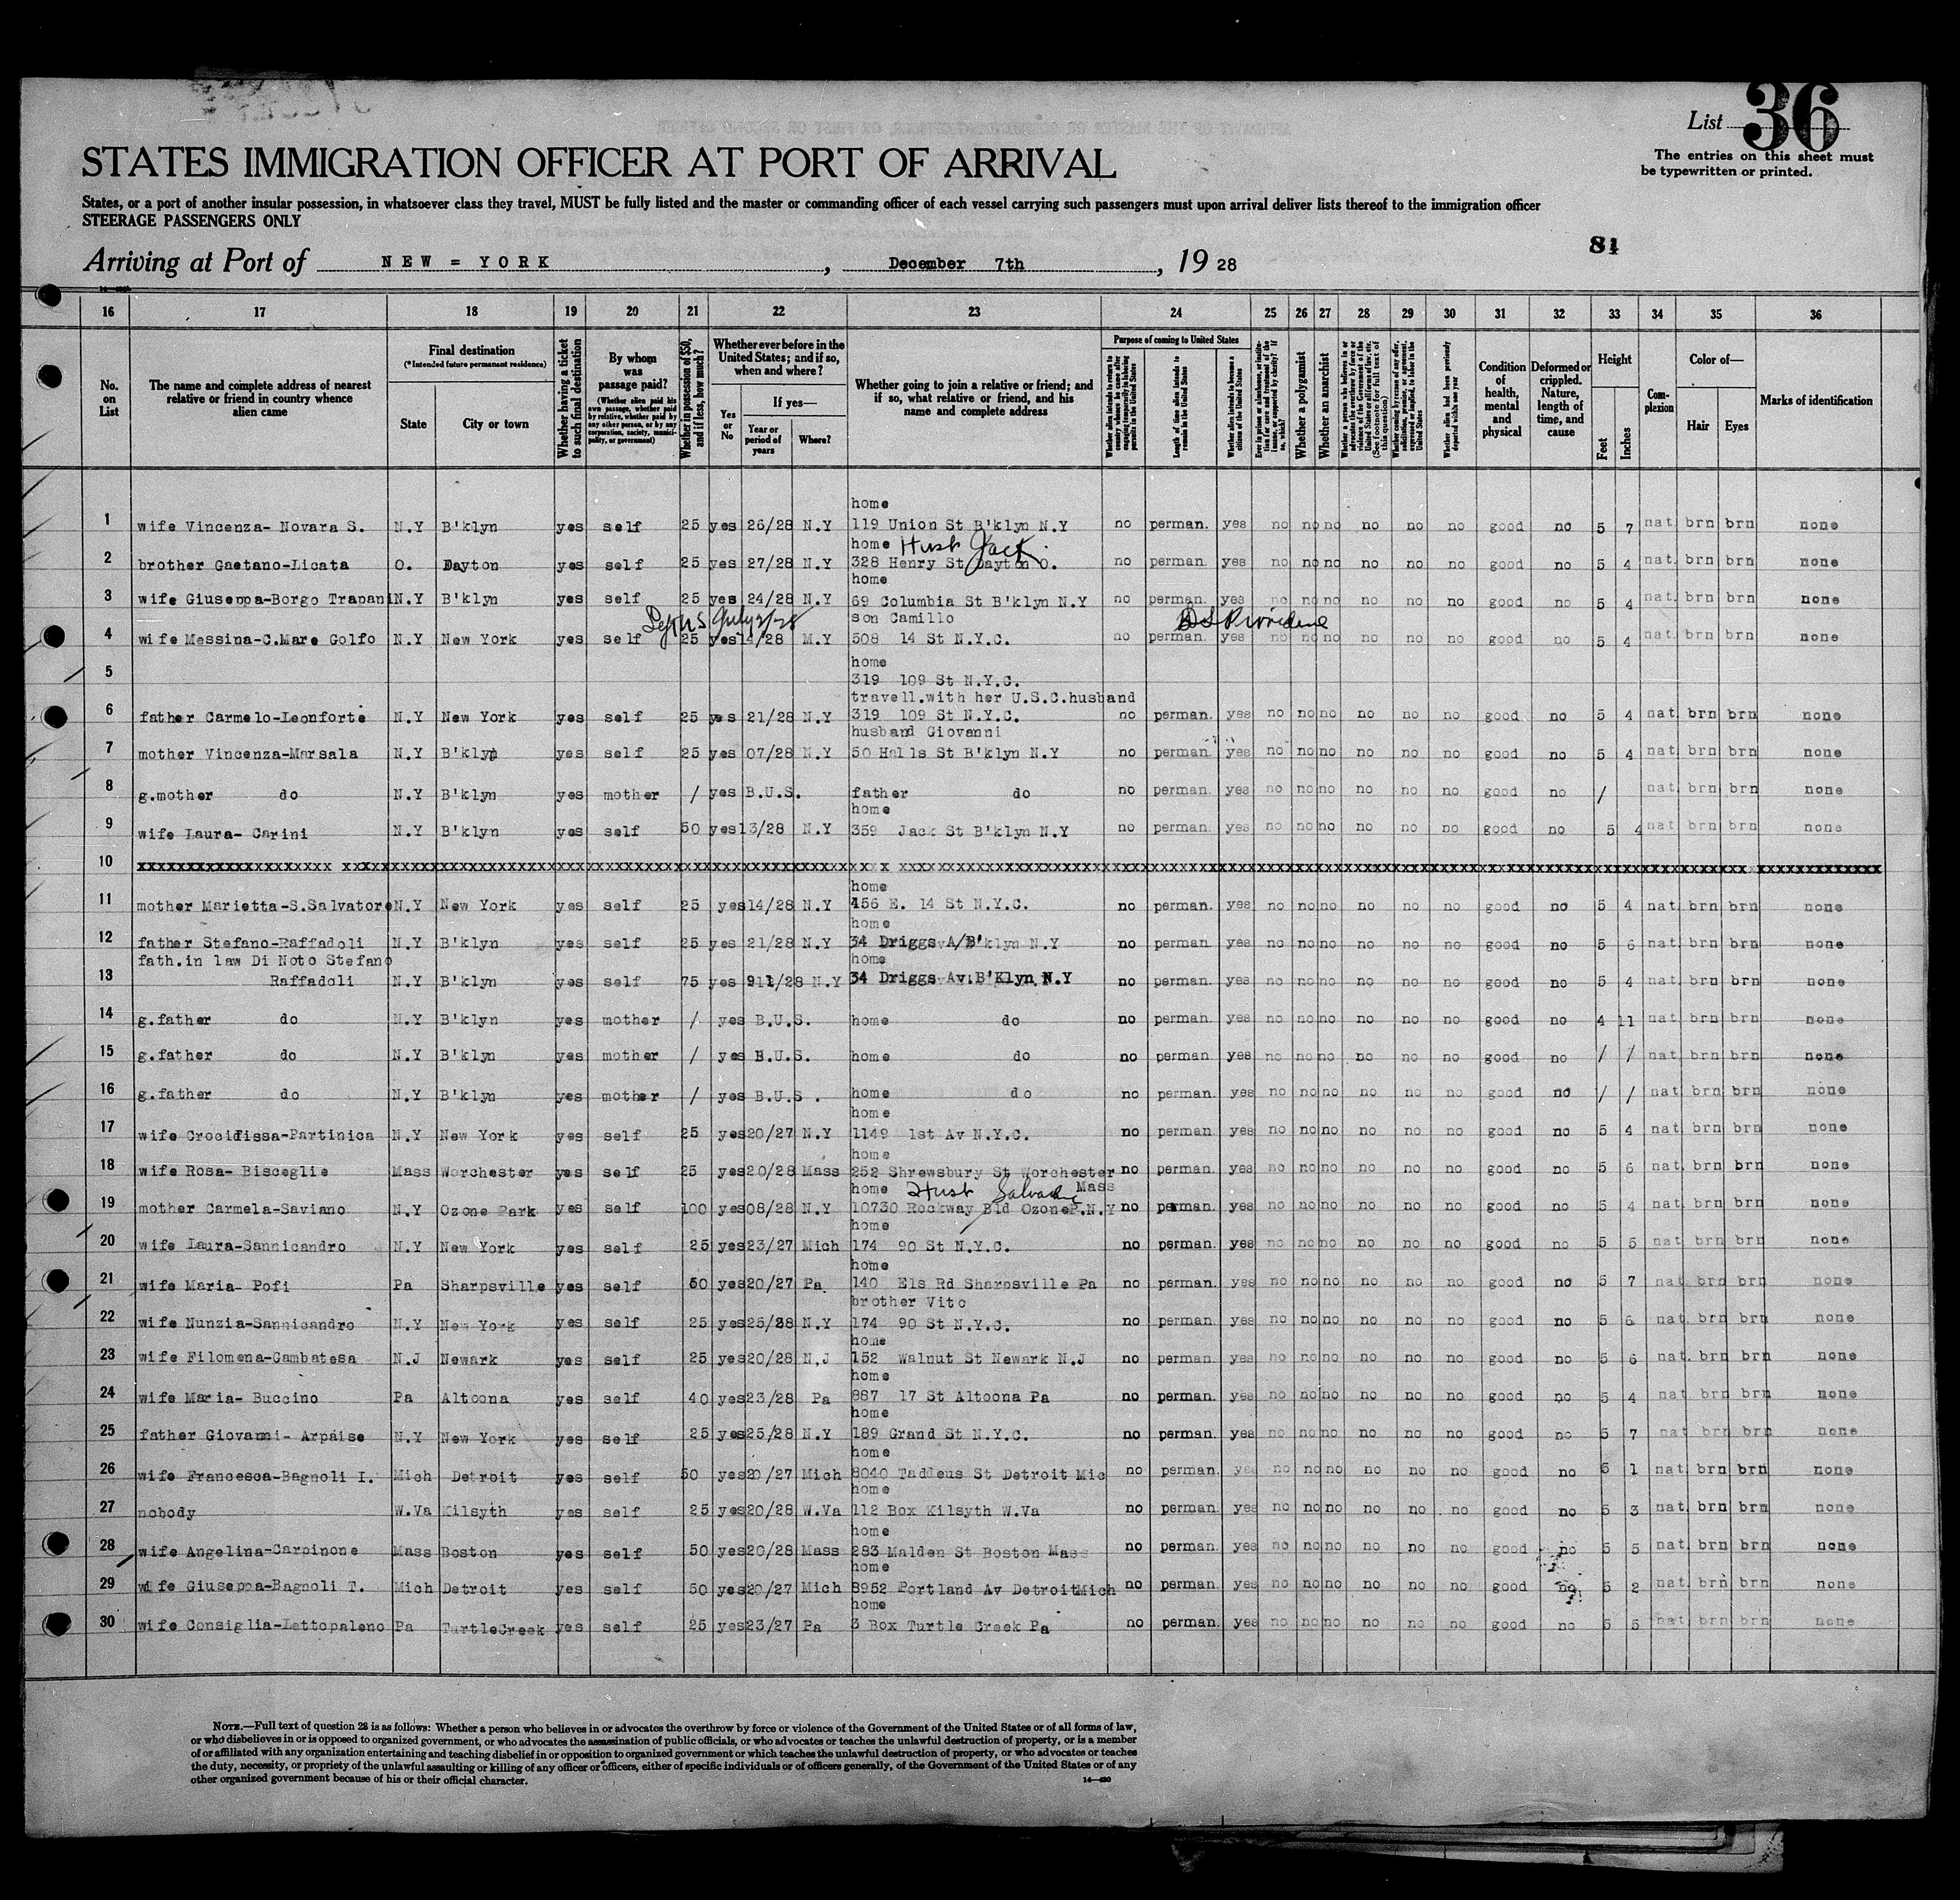 List 36
The entries on this sheet must
be typewritten or printed.
STATES IMMIGRATION OFFICER AT PORT OF ARRIVAL
States, or a port of another insular possession, in whatsoever class they travel, MUST be fully listed and the master or commanding officer of each vessel carrying such passengers must upon arrival deliver lists thereof to the immigration officer
STEERAGE PASSENGERS ONLY
81
Arriving at Port of NEW = YORK, December 7th, 19 28
16 17 18 19 20 21 22 23 24 25 26 27 28 29 30 31 32 33 34 35 36
No. on List
The name and complete address of nearest relative or friend in country whence alien came
Final destination
(*Intended future permanent residence)
State
City or town
Whether having a ticket to such final destination
By whom was passage paid?
(Whether alien paid his own passage, whether paid by relative, whether paid by any other person, or by any corporation, society, municipality, or government)
Whether in possession of $50, and if less, how much?
Whether ever before in the United States; and if so, when and where?
Yes or No
If yes—
Year or period of years
Where?
Whether going to join a relative or friend; and if so, what relative or friend, and his name and complete address
Purpose of coming to United States
Length of time alien intends to remain in the United States
Whether alien intends to become a citizen of the United States
Whether a polygamist
Whether an anarchist
Whether alien had been previously deported within one year
Condition of health, mental and physical
Deformed or crippled. Nature, length of time, and cause
Height
Feet
Inches
Complexion
Color of—
Hair
Eyes
Marks of identification
home
1 wife Vincenza- Novara S. N.Y B'klyn yes self 25 yes 26/28 N.Y 119 Union St B'klyn N.Y no perman. yes no no no no no no good no 5 7 nat brn brn none
home Husb Jack
2 brother Gaetano-Licata O. Dayton yes self 25 yes 27/28 N.Y 328 Henry St Dayton O. no perman. yes no no no no no no good no 5 4 nat. brn brn none
home
3 wife Giuseppa-Borgo Trapani N.Y B'klyn yes self 25 yes 24/28 N.Y 69 Columbia St B'klyn N.Y no perman. yes no no no no no no good no 5 4 nat. brn brn none
July 2/28 son Camillo Providence
4 wife Messina-C.Mare Golfo N.Y New York yes self 25 yes 14/28 M.Y 508 14 St N.Y.C. no perman. yes no no no no no no good no 5 4 nat. brn brn none
home
5 319 109 St N.Y.C.
travell.with her U.S.C.husband
6 father Carmelo-Leonforte N.Y New York yes self 25 yes 21/28 N.Y 319 109 St N.Y.C. no perman. yes no no no no no no good no 5 4 nat. brn brn none
husband Giovanni
7 mother Vincenza-Marsala N.Y B'klyn yes self 25 yes 07/28 N.Y 50 Halls St B'klyn N.Y no perman. yes no no no no no no good no 5 4 nat. brn brn none
8 g.mother do N.Y B'klyn yes mother / yes B.U.S. father do no perman. yes no no no no no no good no / nat. brn brn none
home
9 wife Laura- Carini N.Y B'klyn yes self 50 yes 13/28 N.Y 359 Jack St B'klyn N.Y no perman. yes no no no no no no good no 5 4 nat brn brn none
10 xxxxxxxxxxxxxxxxxxxx xxxxxxxxxxxxxxxxxxxxxxxxxxxxxxxxxxxxxxxxxxxxxxxxxxxxxxxx
home
11 mother Marietta-S.Salvatore N.Y New York yes self 25 yes 14/28 N.Y 456 E. 14 St N.Y.C. no perman. yes no no no no no no good no 5 4 nat brn brn none
home
12 father Stefano-Raffadoli N.Y B'klyn yes self 25 yes 21/28 N.Y 34 Driggs Av B'klyn N.Y no perman. yes no no no no no no good no 5 6 nat. brn brn none
fath.in law Di Noto Stefano home
13 Raffadoli N.Y B'klyn yes self 75 yes 911/28 N.Y 34 Driggs Av.B'Klyn N.Y no perman. yes no no no no no no good no 5 4 nat. brn brn none
14 g.father do N.Y B'klyn yes mother / yes B.U.S. home do no perman. yes no no no no no no good no 4 11 nat. brn brn none
15 g.father do N.Y B'klyn yes mother / yes B.U.S. home do no perman. yes no no no no no no good no / / nat. brn brn none
16 g.father do N.Y B'klyn yes mother / yes B.U.S . home do no perman. yes no no no no no no good no / / nat. brn brn none
home
17 wife Crocifissa-Partinica N.Y New York yes self 25 yes 20/27 N.Y 1149 1st Av N.Y.C. no perman. yes no no no no no no good no 5 4 nat. brn brn none
home
18 wife Rosa- Bisceglie Mass Worchester yes self 25 yes 20/28 Mass 252 Shrewsbury St Worchester Mass no perman. yes no no no no no no good no 5 6 nat. brn brn none
home Husb Salvadore
19 mother Carmela-Saviano N.Y Ozone Park yes self 100 yes 08/28 N.Y 10730 Rockway Bld OzoneP.N.Y no perman. yes no no no no no no good no 5 4 nat. brn brn none
home
20 wife Laura-Sannicandro N.Y New York yes self 25 yes 23/27 Mich 174 90 St N.Y.C. no perman. yes no no no no no no good no 5 5 nat brn brn none
home
21 wife Maria- Pofi Pa Sharpsville yes self 50 yes 20/27 Pa. 140 Els Rd Sharpsville Pa no perman. yes no no no no no no good no 5 7 nat brn brn none
brother Vito
22 wife Nunzia-Sannicandro N.Y New York yes self 25 yes 25/28 N.Y 174 90 St N.Y.C. no perman. yes no no no no no no good no 5 6 nat. brn brn none
home
23 wife Filomena-Gambatesa N.J Newark yes self 25 yes 20/28 N.J 152 Walnut St Newark N.J no perman yes no no no no no no good no 5 6 nat. brn brn none
home
24 wife Maria- Buccino Pa Altoona yes self 40 yes 23/28 Pa 887 17 St Altoona Pa no perman. yes no no no no no no good no 5 4 nat brn brn none
home
25 father Giovanni- Arpaise N.Y New York yes self 25 yes 25/28 N.Y 189 Grand St N.Y.C. no perman. yes no no no no no no good no 5 7 nat brn brn none
home
26 wife Francesca-Bagnoli I. Mich Detroit yes self 50 yes 20/27 Mich 8040 Taddeus St Detroit Mic no perman. yes no no no no no no good no 5 1 nat. brn brn none
home
27 nobody W.Va Kilsyth yes self 25 yes 20/28 W.Va 112 Box Kilsyth W.Va no perman. yes no no no no no no good no 5 3 nat. brn brn none
home
28 wife Angelina-Carpinone Mass Boston yes self 50 yes 20/28 Mass 283 Malden St Boston Mass no perman. yes no no no no no no good no 5 5 nat. brn brn none
home
29 wife Giuseppa-Bagnoli T. Mich Detroit yes self 50 yes 20/27 Mich 8952 Portland Av DetroitMich no perman. yes no no no no no no good no 5 2 nat. brn brn none
home
30 wife Consiglia-Lettopaleno Pa TurtleCreek yes self 25 yes 23/27 Pa 3 Box Turtle Creek Pa no perman. yes no no no no no no good no 5 5 nat brn brn none
NOTE.—Full text of question 28 is as follows: Whether a person who believes in or advocates the overthrow by force or violence of the Government of the United States or of all forms of law,
or who disbelieves in or is opposed to organized government, or who advocates the assassination of public officials, or who advocates or teaches the unlawful destruction of property, or is a member
of or affiliated with any organization entertaining and teaching disbelief in or opposition to organized government or which teaches the unlawful destruction of property, or who advocates or teaches
the duty, necessity, or propriety of the unlawful assaulting or killing of any officer or officers, either of specific individuals or of officers generally, of the Government of the United States or of any
other organized government because of his or their official character.
14—430